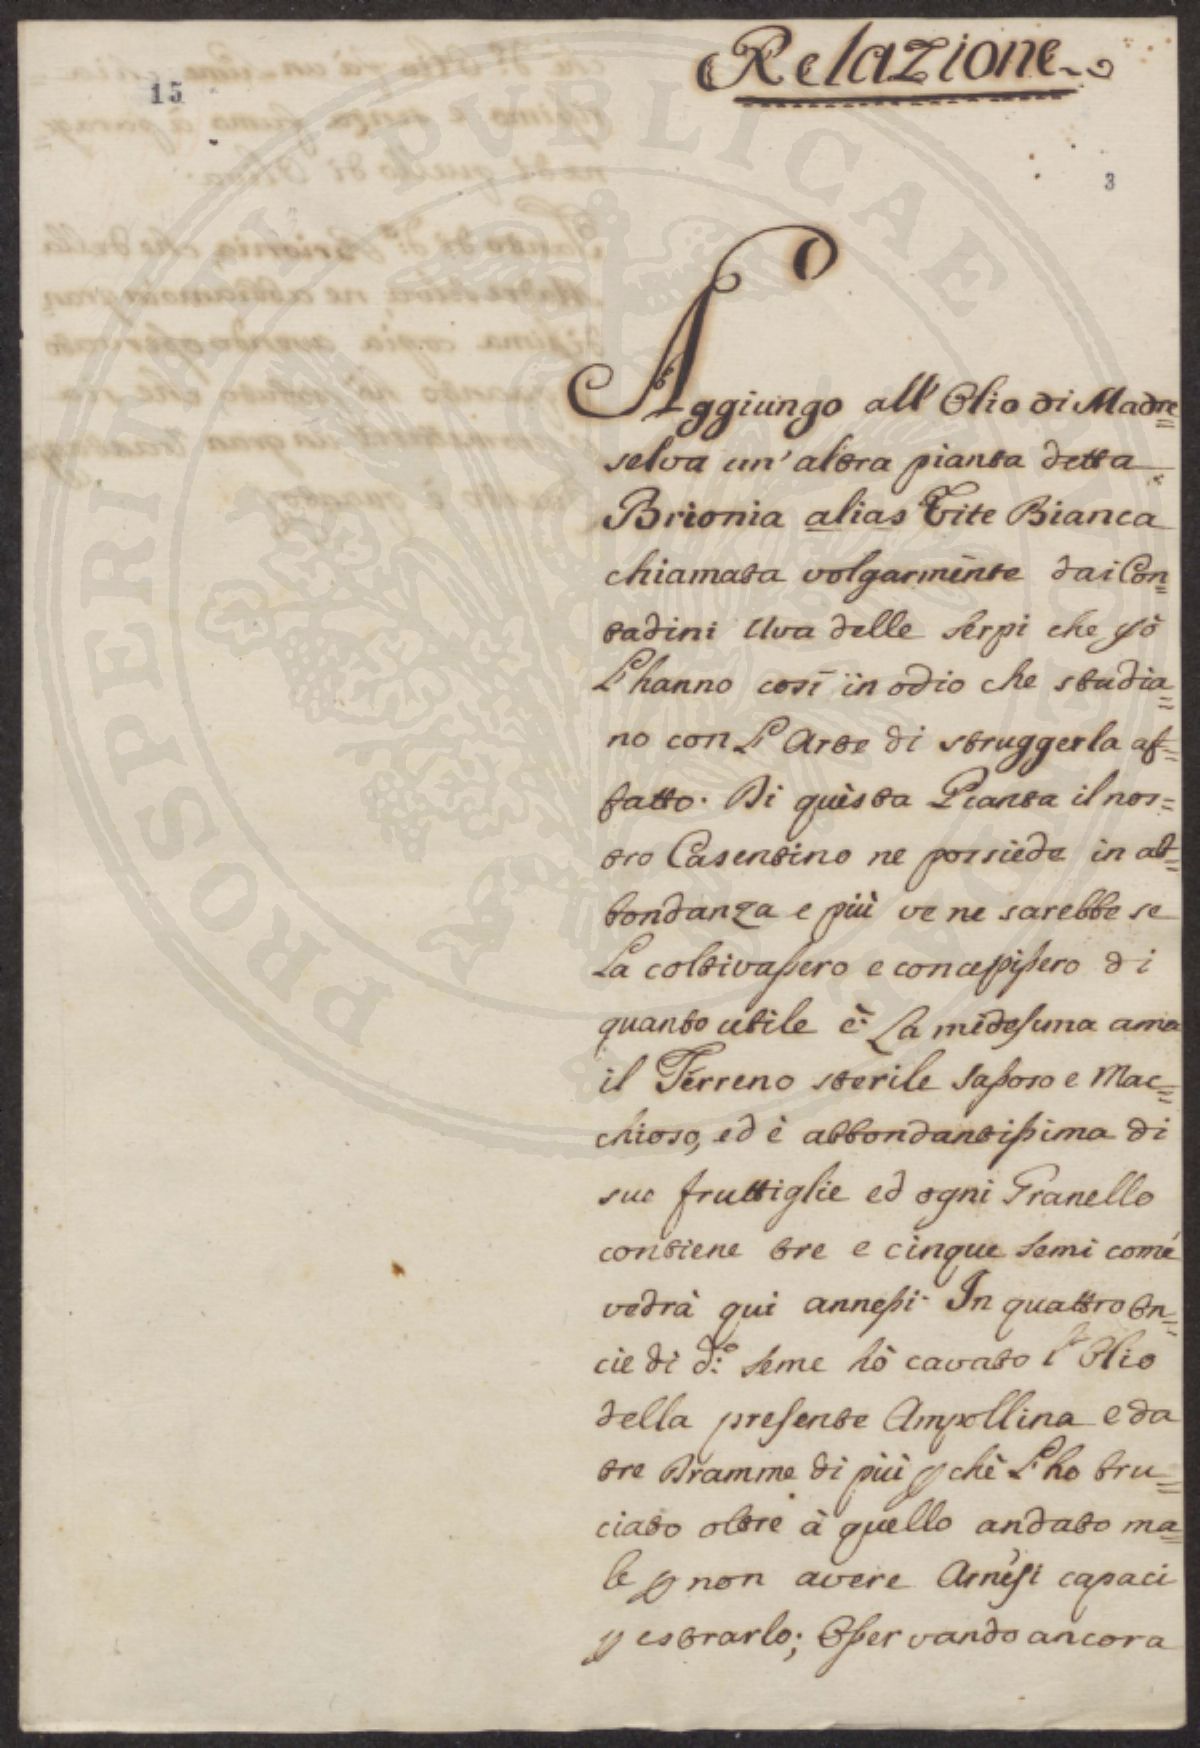 Relazione
15
3
Aggiungo all' Olio di Madre=
selva un' altra pianta detta
Brionia alias Vite Bianca
chiamata volgarmente dai Con=
tadini Uva delle Serpi che pò
L'hanno così in odio che studia=
no con L'Arte di struggerla af=
fatto. Di questa Pianta il nos=
tro Casentino ne possiede in ab=
bondanza e più ve ne sarebbe se
La coltivassero e concepissero di
quanto utile è. La midesima ama
il Terreno sterile Sassoso e Mac=
chioso, ed è abbondantissima di
sue fruttiglie ed ogni Granello
contiene tre e cinque Semi come
vedrà qui annessi. In quattro On=
cie di d.º Seme hò cavato l'Olio
della presente Ampollina e da
tre Dramme di più p chè L'ho bru=
ciato oltre à quello andato ma=
le p non avere Arnesi capaci
p estrarlo; Osservando ancora
PROSPERITATI PUBLICAE AUGENDAE